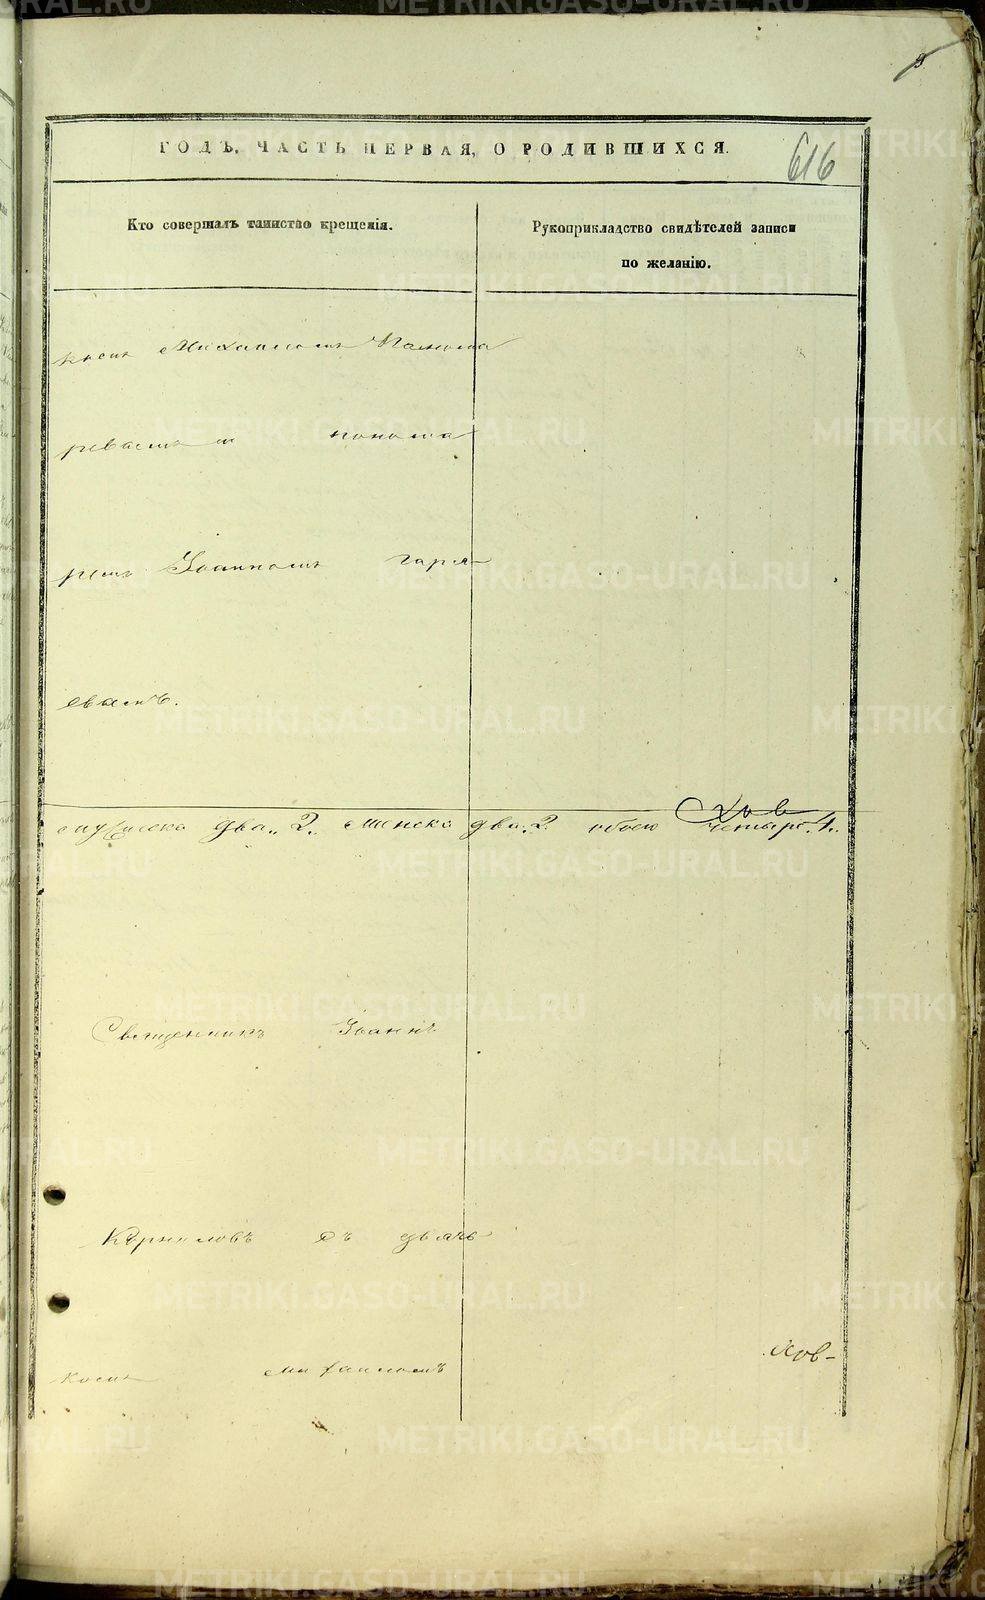 9
ГОДЪ, ЧАСТЬ ПЕРВАЯ, О РОДИВШИХСЯ.
616
Кто совершалъ таинство крещенія.
Рукоприкладство свидѣтелей записи
по желанію.
комъ Михаиломъ Понома
ревымъ и понома
ремъ Іоанномъ Гаря
евымъ.
мужеска два 2. женска два 2 обоего четыре 4.
Священникъ Іоаннъ
Корниловъ съ дьяч
комъ Михаиломъ
METRIKI.GASO-URAL.RU